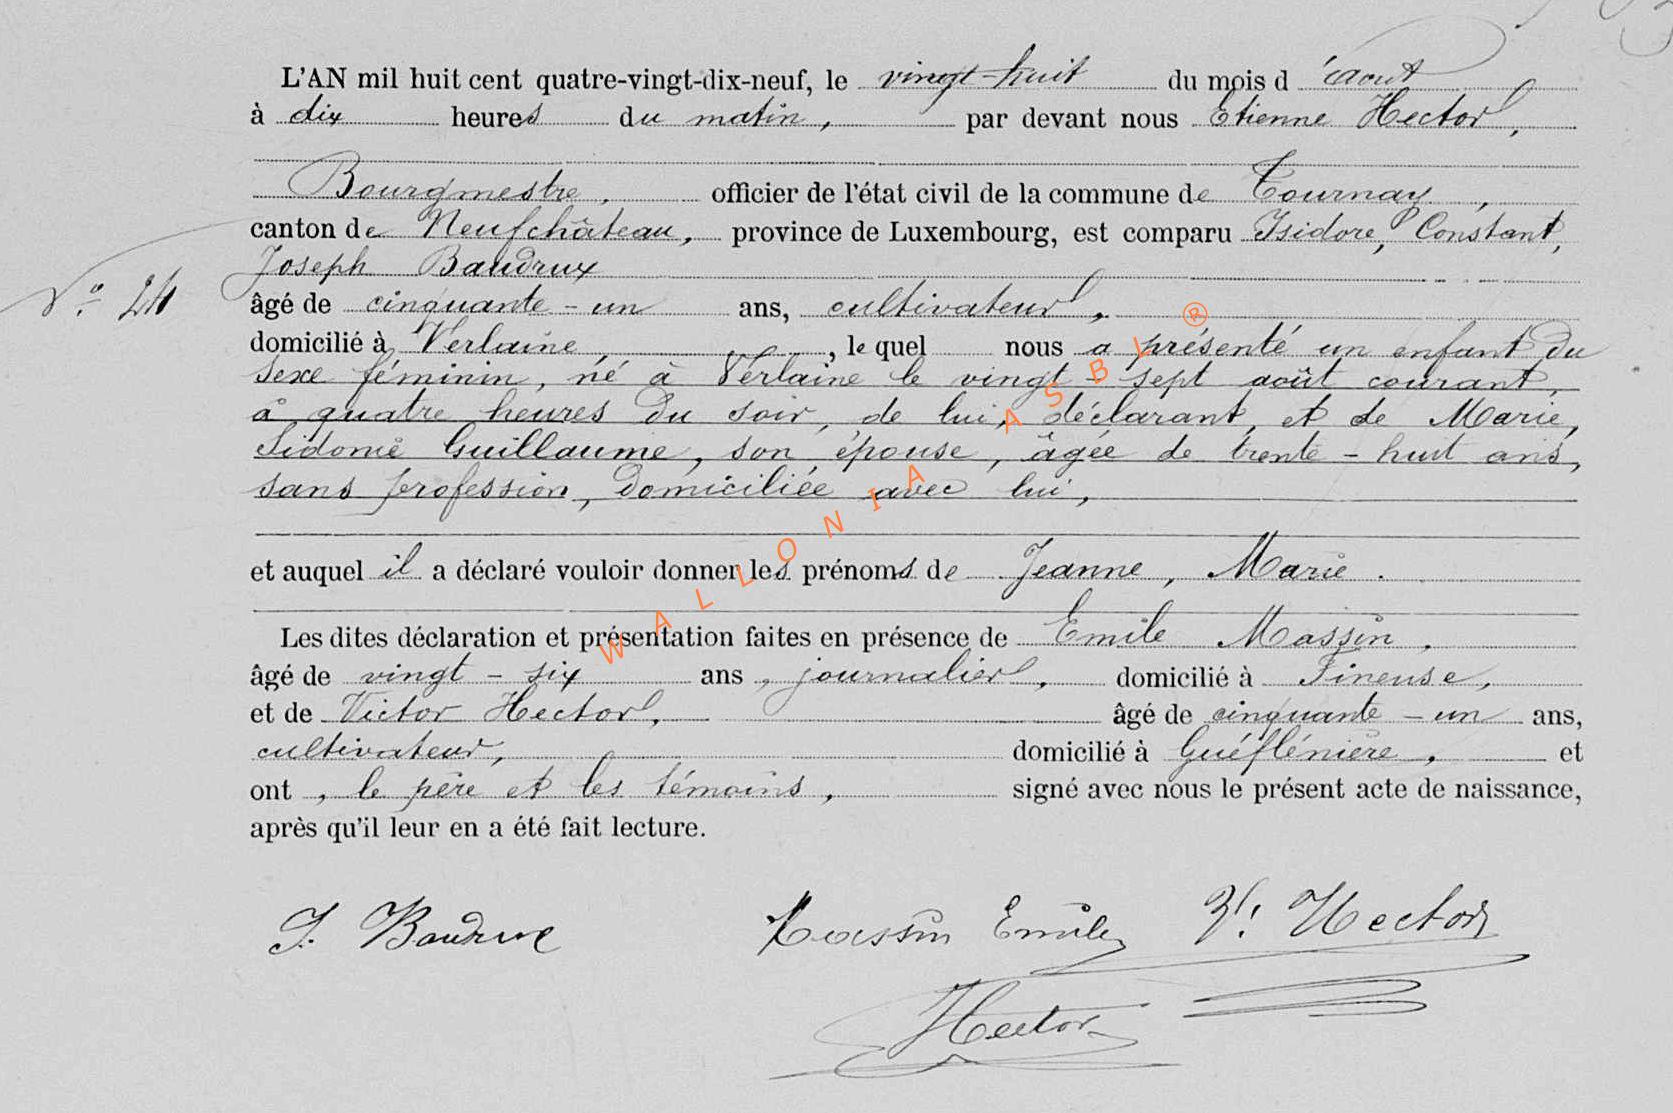 L'AN mil huit cent quatre-vingt-dix-neuf, le vingt-huit du mois d'août
à dix heures du matin, par devant nous Etienne Hector,
Bourgmestre, officier de l'état civil de la commune de Tournay,
canton de Neufchâteau, province de Luxembourg, est comparu Isidore, Constant,
Joseph Baudrux
N° 24
âgé de cinquante-un ans, cultivateur,
domicilié à Verlaine, lequel nous a présenté un enfant du
sexe féminin, né à Verlaine le vingt-sept août courant,
à quatre heures du soir, de lui, déclarant, et de Marie,
Sidonie Guillaume, son épouse, âgée de trente-huit ans,
sans profession, domiciliée avec lui,
et auquel il a déclaré vouloir donner les prénoms de Jeanne, Marie.
Les dites déclaration et présentation faites en présence de Emile Massin,
âgé de vingt-six ans, journalier, domicilié à Fineuse,
et de Victor Hector, âgé de cinquante-un ans,
cultivateur, domicilié à Guéflénière, et
ont, le père et les témoins, signé avec nous le présent acte de naissance,
après qu'il leur en a été fait lecture.
J. Baudrux Massin Emile V. Hector
Hector
WALLONIA ASBL ®